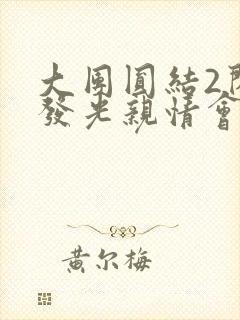 大團圓結2閃
發光親情會
黄尔梅